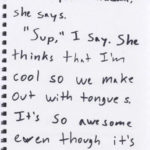 she says.
"Sup," I say. She
thinks that I'm
cool so we make
out with tongues.
It's so awesome
even though it's